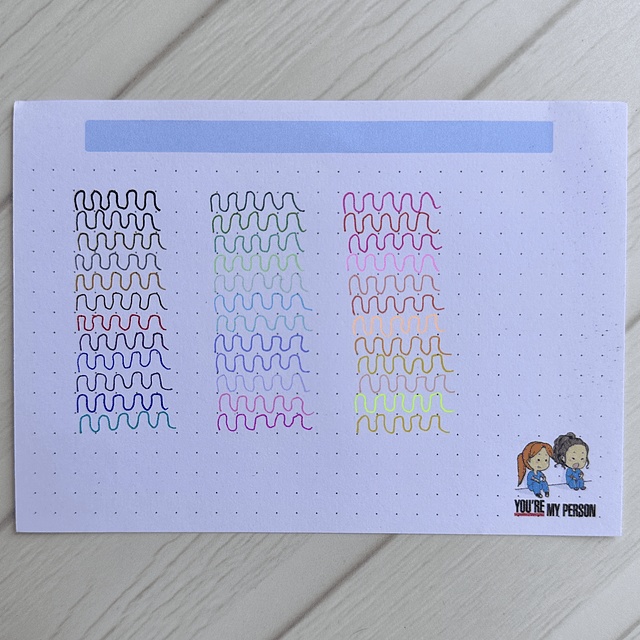 YOU'RE MY PERSON